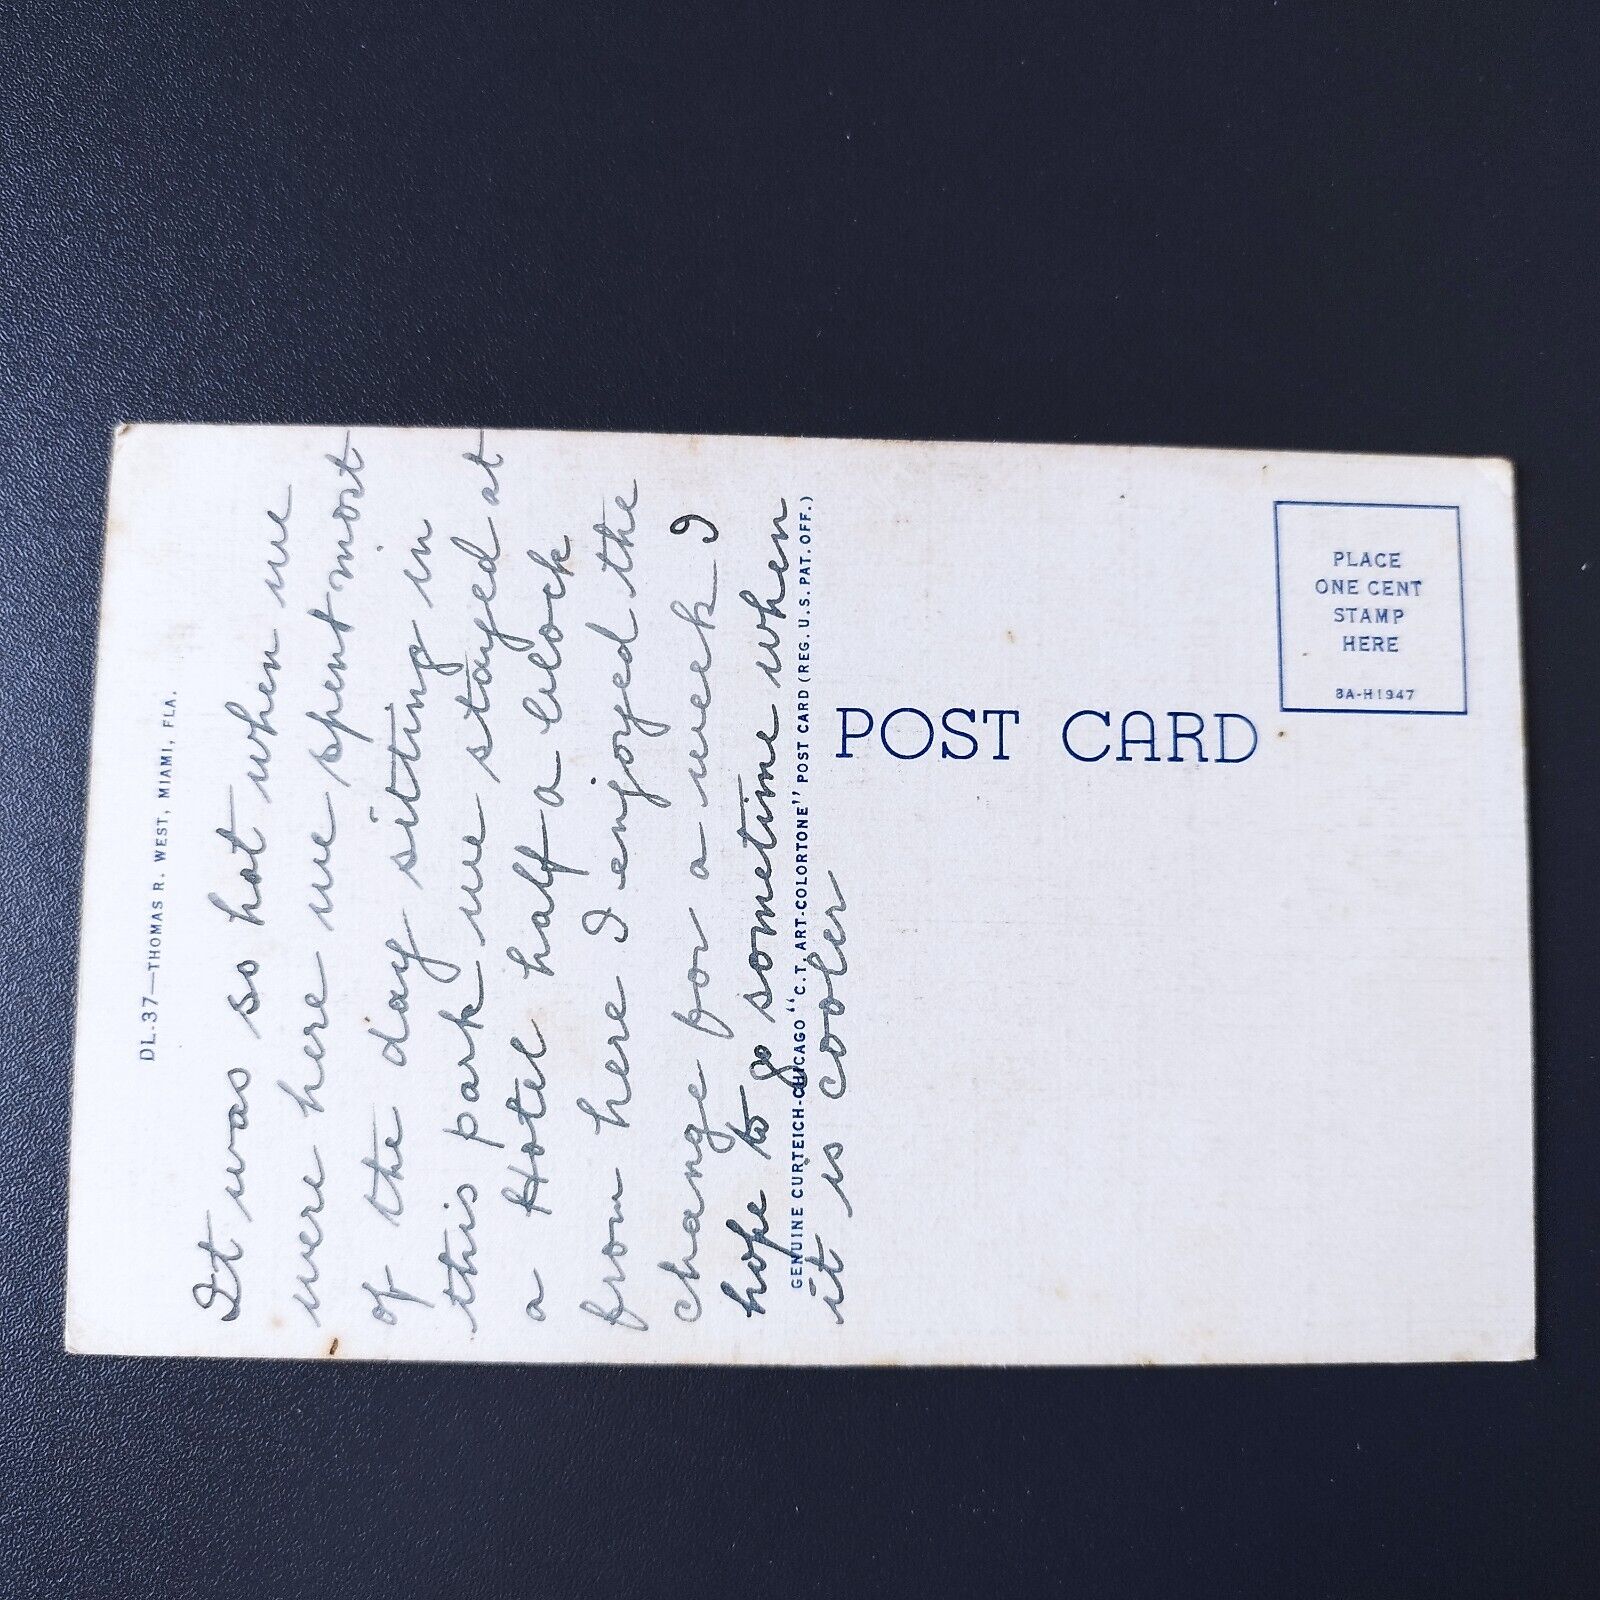 DL-37—THOMAS R. WEST, MIAMI, FLA.
It was so hot when we
were here we spent most
of the day sitting in
this park we stayed at
a Hotel half a block
from here I enjoyed the
change for a week I
hope to go sometime when
it is cooler
GENUINE CURTEICH-CHICAGO "C.T. ART-COLORTONE" POST CARD (REG. U.S. PAT. OFF.)
POST CARD
PLACE
ONE CENT
STAMP
HERE
8A-H1947